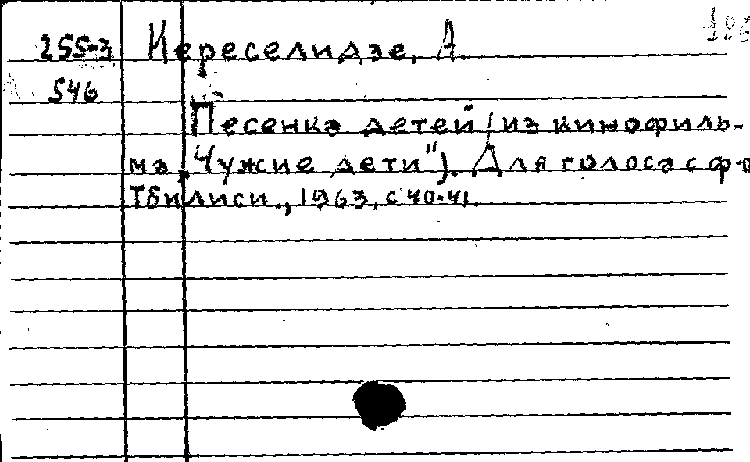 255-3 Кереселидзе, А.
546
Песенка детей (из кинофиль-
ма „Чужие дети"). Для голоса с ф-о
Тбилиси, 1963, с 40-41.